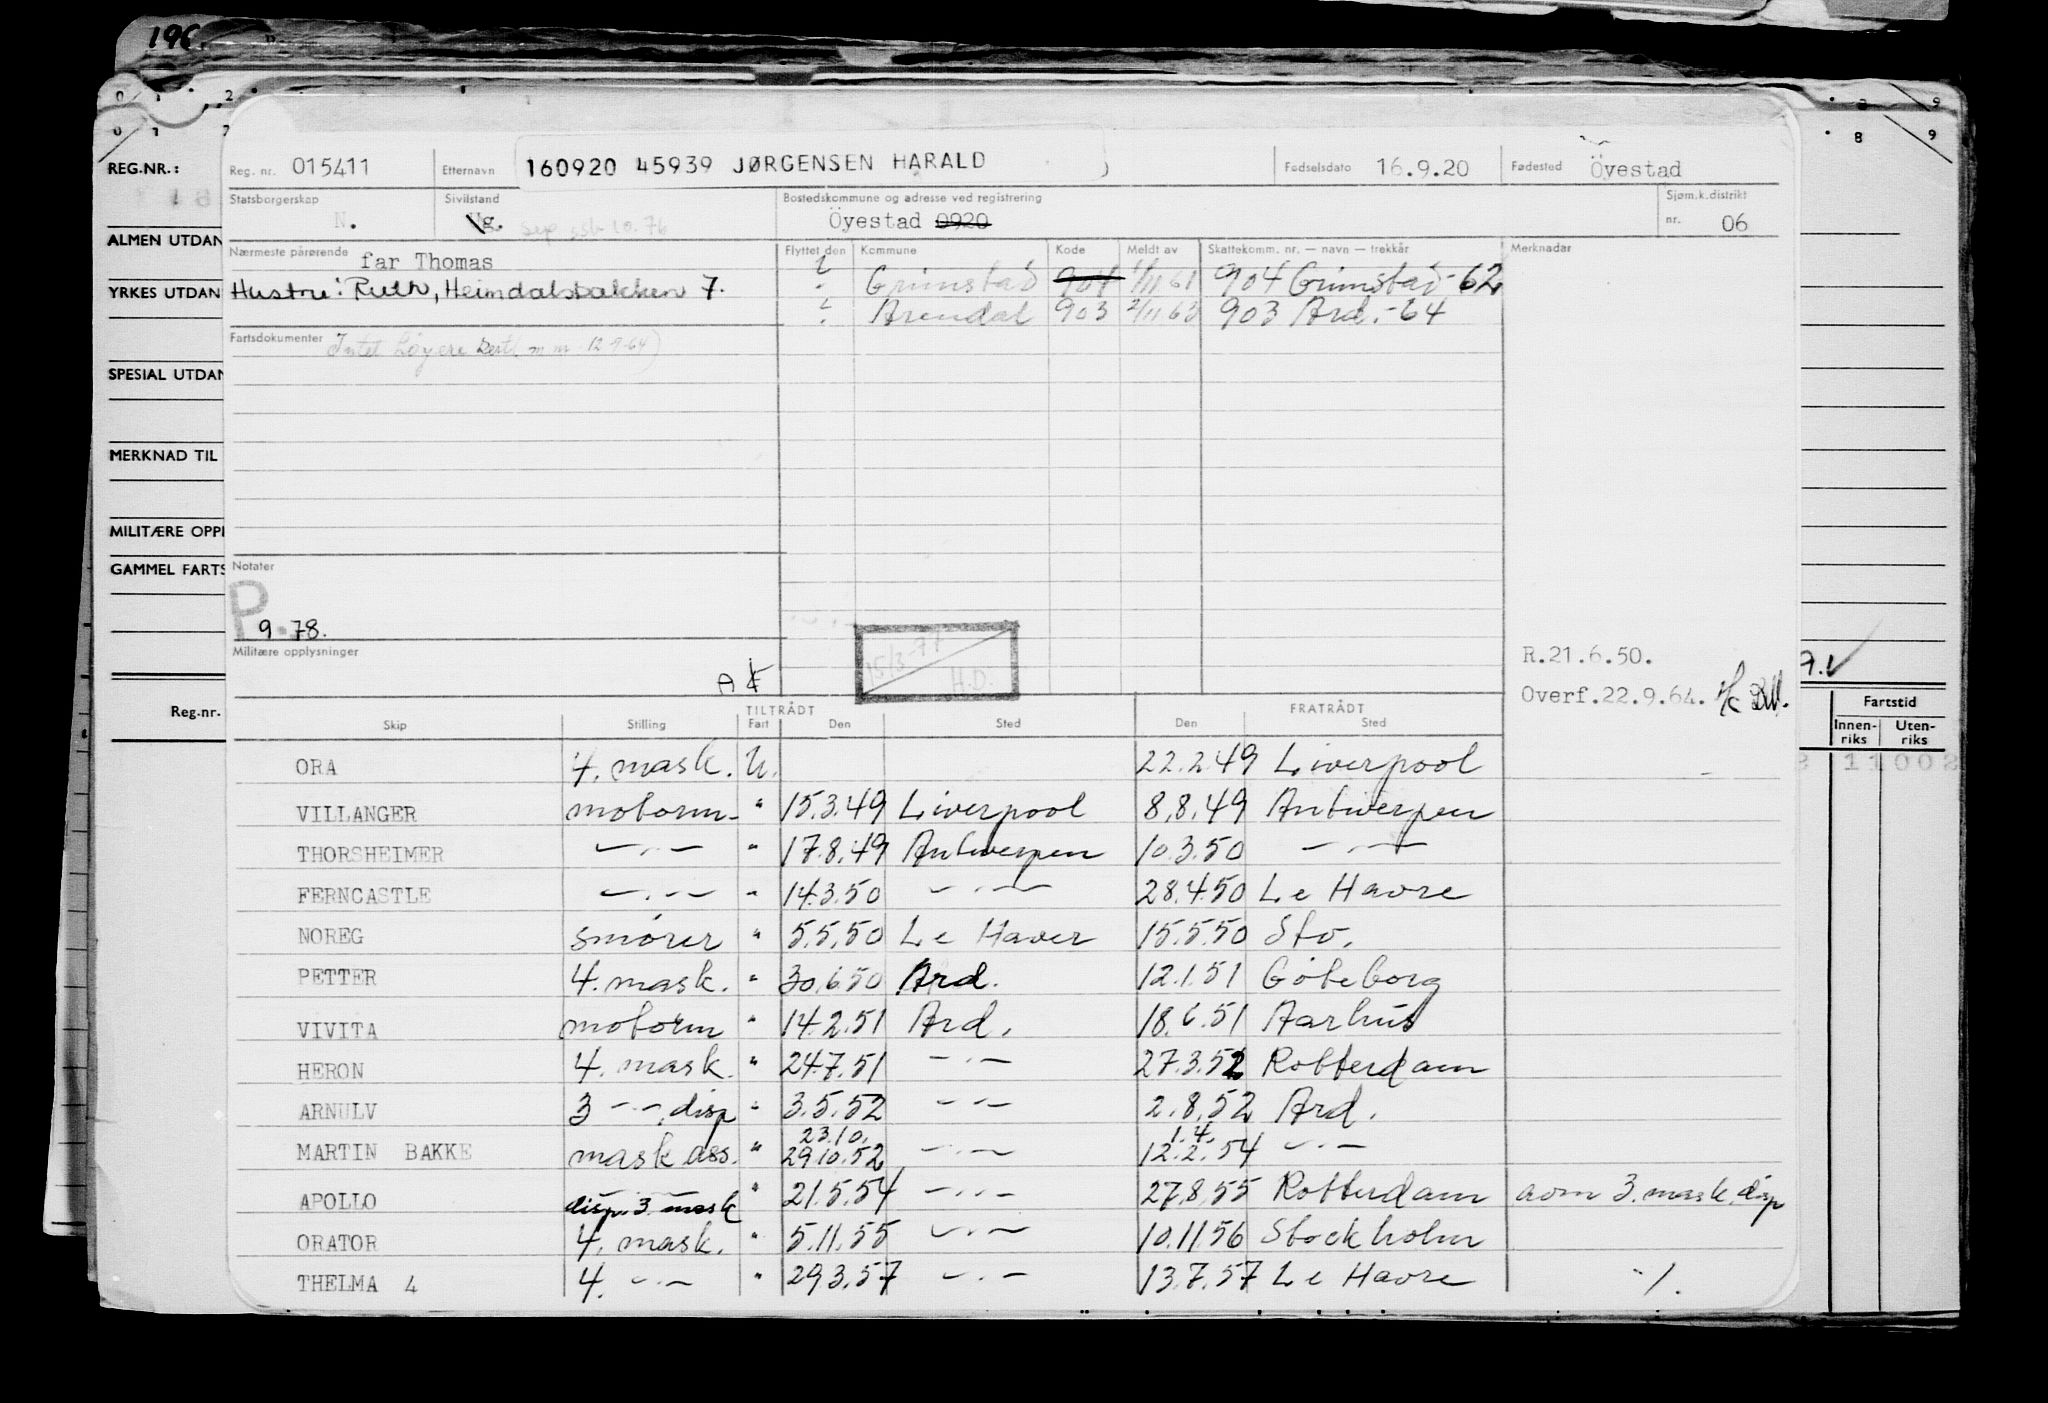 196
0 1 2
8 9
0 1 2
8 9
REG.NR.:
Reg. nr. 015411 Etternavn 160920 45939 JØRGENSEN HARALD Fødselsdato 16.9.20 Fødested Öyestad
Statsborgerskap N. Sivilstand Ug. Sep. 10.76 Bostedskommune og adresse ved registrering Öyestad 0920 Sjøm.k.distrikt nr. 06
ALMEN UTDAN
Nærmeste pårørende far Thomas Flyttet den Kommune Kode Meldt av Skattekomm. nr. — navn — trekkår Merknadar
? Grimstad 904 1/11 61 904 Grimstad-62
YRKES UTDAN
Hustru: Ruth, Heimdalsbakken 7.
? Arendal 903 2/11 63 903 Ard.-64
Fartsdokumenter Intet høyere sert. m m 12-9-64)
SPESIAL UTDAN
MERKNAD TIL
MILITÆRE OPPL
GAMMEL FARTS
Notater
P.
9.78.
Militære opplysninger
15/3-77
H.D.
R.21.6.50.
Overf.22.9.64.
Reg.nr.
Fartstid
Innen-riks Uten-riks
11002
TILTRÅDT FRATRÅDT
Skip Stilling Fart Den Sted Den Sted
ORA 4. mask. U. 22.2.49 Liverpool
VILLANGER motorm. " 15.3.49 Liverpool 8.8.49 Antwerpen
THORSHEIMER —.— " 17.8.49 Antwerpen 10.3.50 —.—
FERNCASTLE —.— " 14.3.50 —.— 28.4.50 Le Havre
NOREG smører " 5.5.50 Le Haver 15.5.50 Sto.
PETTER 4. mask. " 30.6.50 Ard. 12.1.51 Göteborg
VIVITA motorm " 14.2.51 Ard. 18.6.51 Aarhus
HERON 4. mask. " 24.7.51 —.— 27.3.52 Rotterdam
ARNULV 3 —.— disp " 3.5.52 —.— 2.8.52 Ard.
23.10. 1.4.
MARTIN BAKKE mask ass. " 29.10.52 —.— 12.2.54 —.—
APOLLO disp. 3 mask " 21.5.54 —.— 27.8.55 Rotterdam som 3. mask. disp
ORATOR 4. mask. " 5.11.55 —.— 10.11.56 Stockholm
THELMA 4 4. —.— " 29.3.57 —.— 13.7.57 Le Havre ·/.